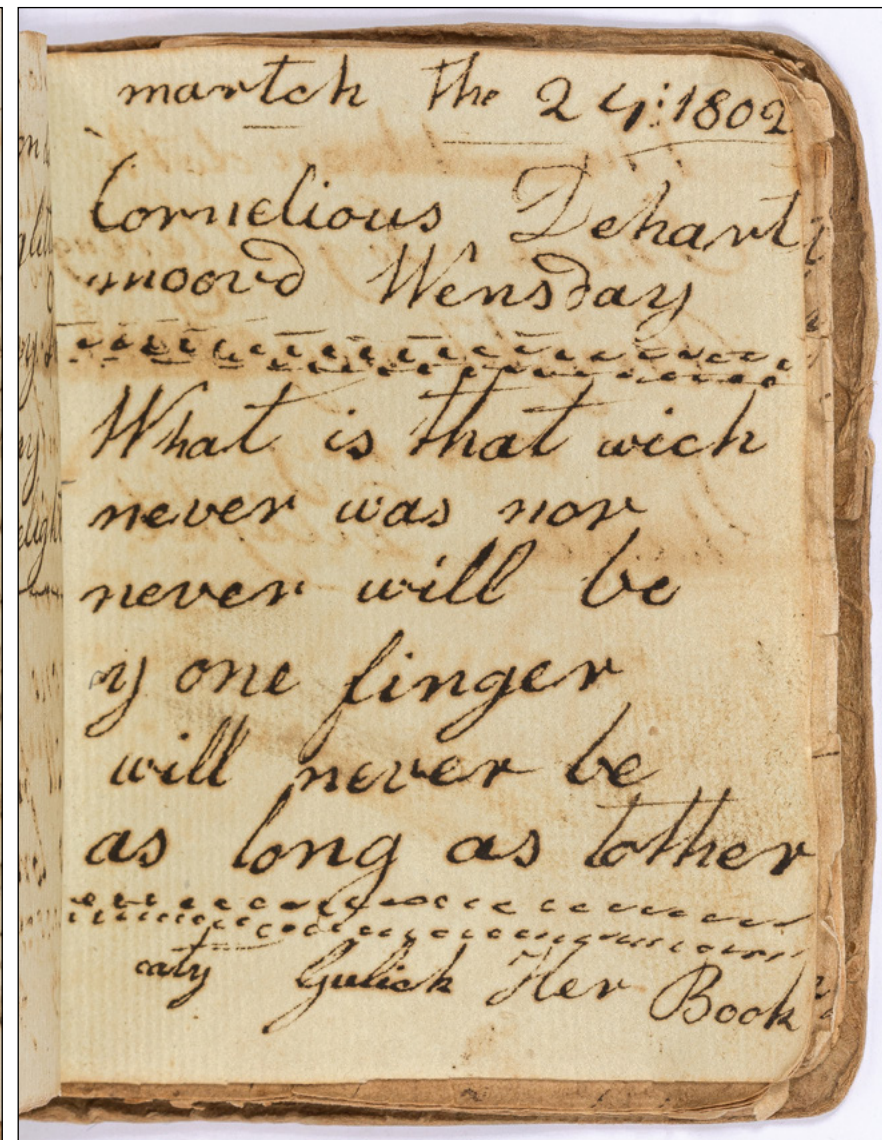 martch the 24:1802
Cornelious Dehart
moovd Wensday
What is that wich
never was nor
never will be
y one finger
will never be
as long as tother
caty Gulick Her Book